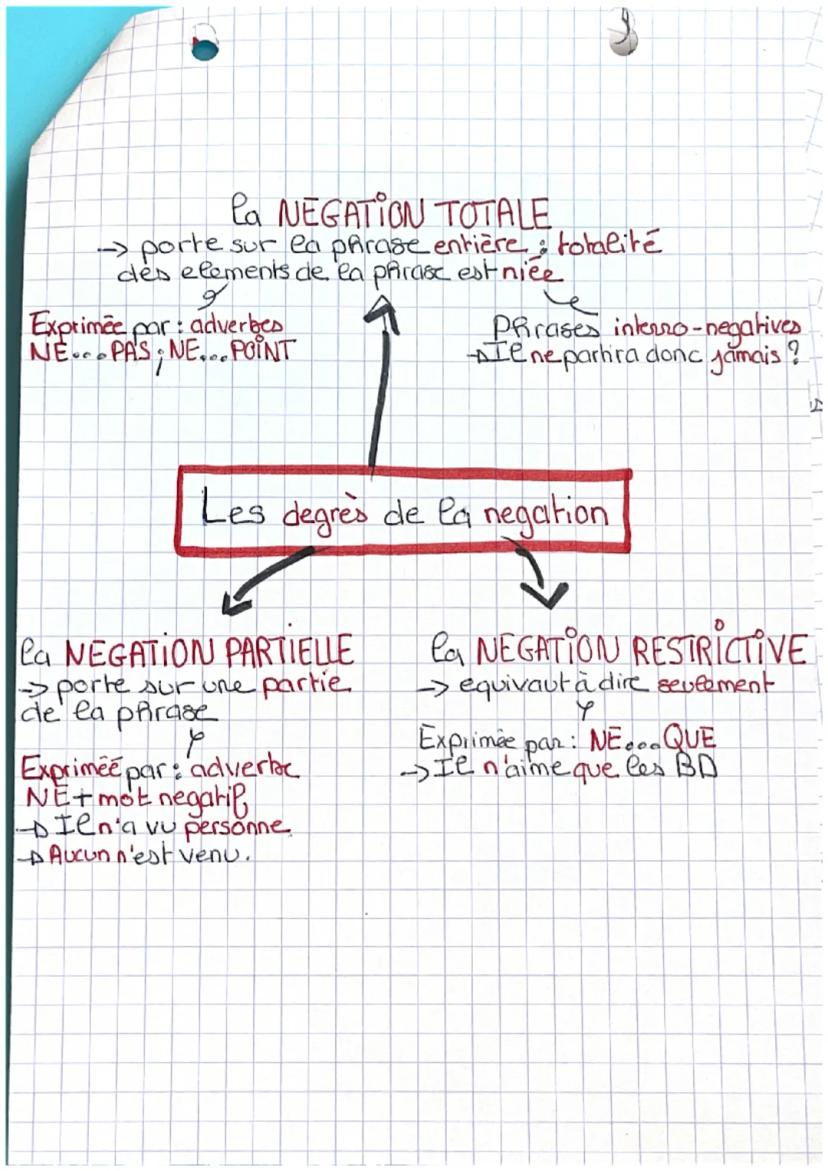 la NEGATION TOTALE
-> porte sur la phrase entière : totalité
des elements de la phrase est niée
Exprimée par : adverbes
NE...PAS ; NE...POINT
Phrases interro-negatives
→ Il ne partira donc jamais ?
Les degrès de la negation
la NEGATION PARTIELLE
-> porte sur une partie
de la phrase
Expriméé par : adverbe
NE + mot negatif
→ Il n'a vu personne
→ Aucun n'est venu.
la NEGATION RESTRICTIVE
-> equivaut à dire seulement
Exprimée par : NE...QUE
-> Il n'aime que les BD